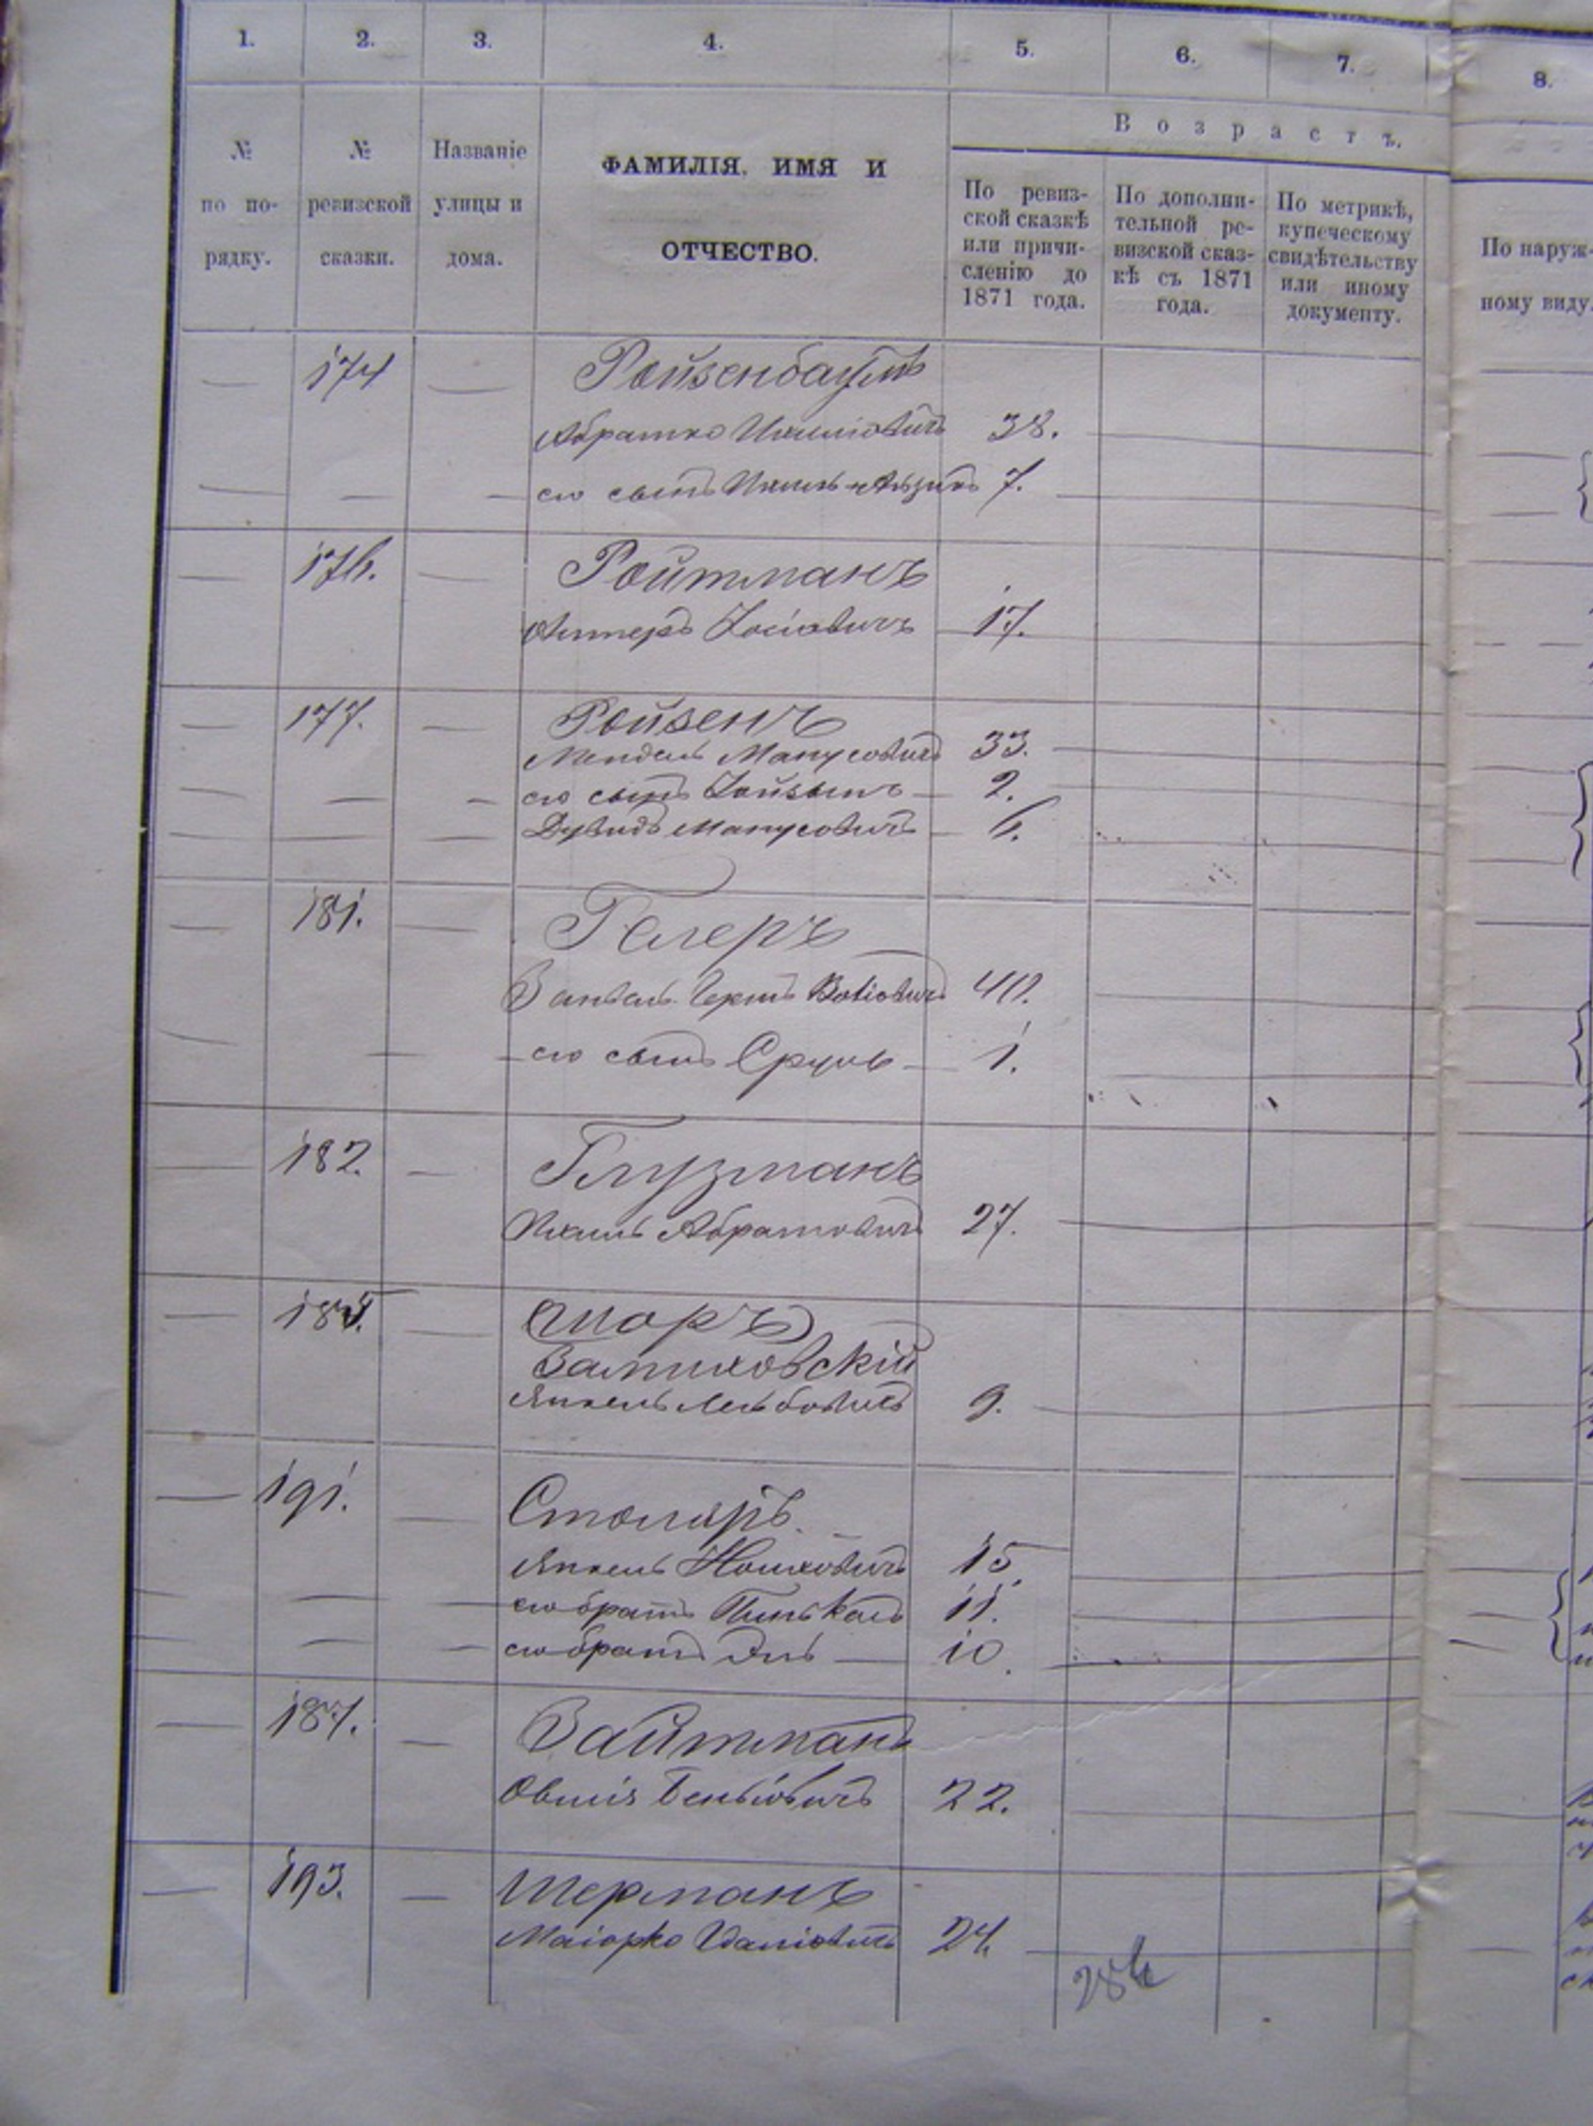 1. 2. 3. 4. 5. 6. 7. 8.
№ по по-рядку.
№ ревизской сказки.
Названіе улицы и дома.
ФАМИЛІЯ, ИМЯ И
ОТЧЕСТВО.
Возрастъ.
По ревиз-
ской сказкѣ
или причи-
сленію до
1871 года.
По дополни-
тельной ре-
визской сказ-
кѣ съ 1871
года.
По метрикѣ,
купеческому
свидѣтельству
или иному
документу.
По наруж-
ному виду.
— 174 — Ройзенбаумъ
Абрамко Ихиліовичъ 38.
— — — его сынъ Ихиль 7.
— 176. — Ройтманъ
Алтеръ Іосіовичъ 17.
— 177. — Ройзенъ
Мендель Манусовичъ 33.
— — — его сынъ 2.
— — — Дувидъ Манусовичъ 6.
— 181. — Гелеръ
Гершъ 40.
— — — его сынъ Сруль 1.
— 182. — Глузманъ
Ихиль Абрамовичъ 27.
— 185. — Шоръ
Залиховскій
Янкель Лейбовичъ 9.
— 191. — Столяръ
Янкель 15.
— — — его братъ 11.
— — — его братъ Эль 10.
— 187. — Вайтманъ
Овшія 22.
— 193. — Шерманъ
Маіорко 24.